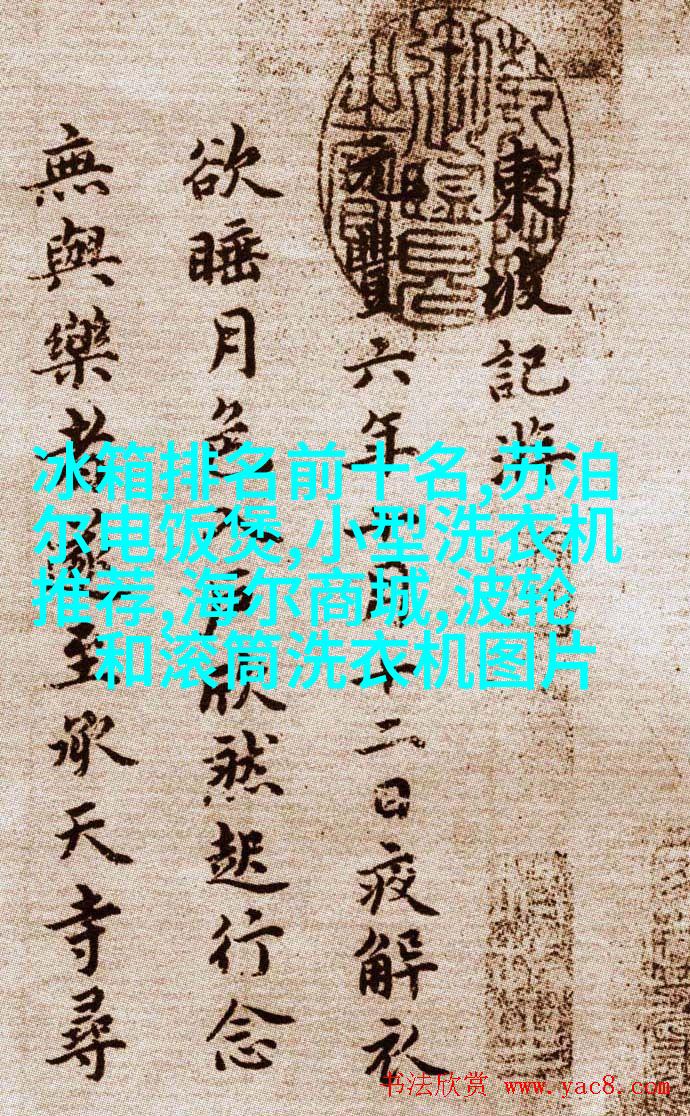 東坡記
元豐六年十月十二日夜解衣
欲睡月色入戶欣然起行念
無與樂者遂至承天寺尋
冰箱排名前十名,苏泊
尔电饭煲,小型洗衣机
推荐,海尔商城,波轮
和滚筒洗衣机图片
书法欣赏 www.yac8.com